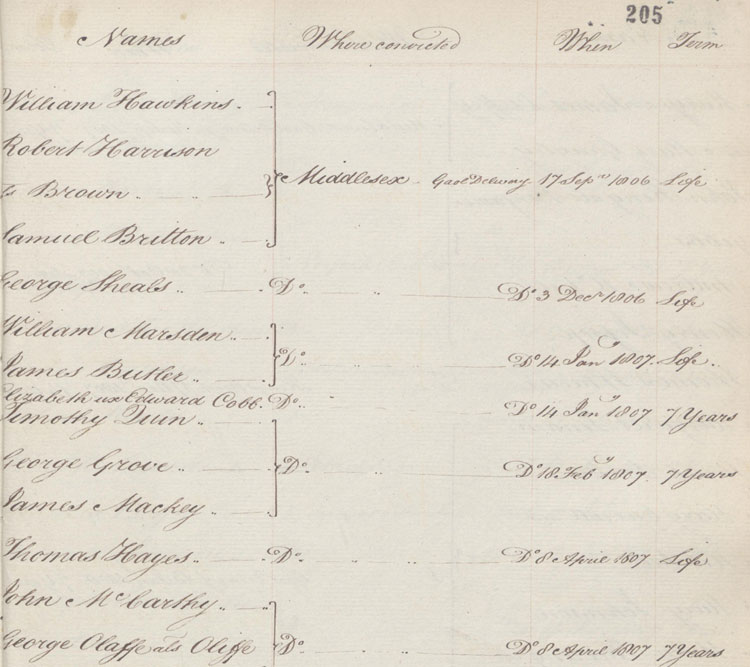 205
Names Where convicted When Term
William Hawkins.
Robert Harrison
Brown Middlesex Gaol Delivery 17 Sepr 1806 Life
Samuel Britton
George Sheals Do Do 3 Decr 1806 Life
William Marsden
James Butler Do Do 14 Jany 1807 Life.
Elizabeth ux Edward Cobb. Do Do 14 Jany 1807 7 Years
Timothy Quin
George Grove Do Do 18 Feby 1807 7 Years
James Mackey
Thomas Hayes Do Do 8 April 1807 Life
John McCarthy
George Olaffe als Oliffe Do Do 8 April 1807 7 Years